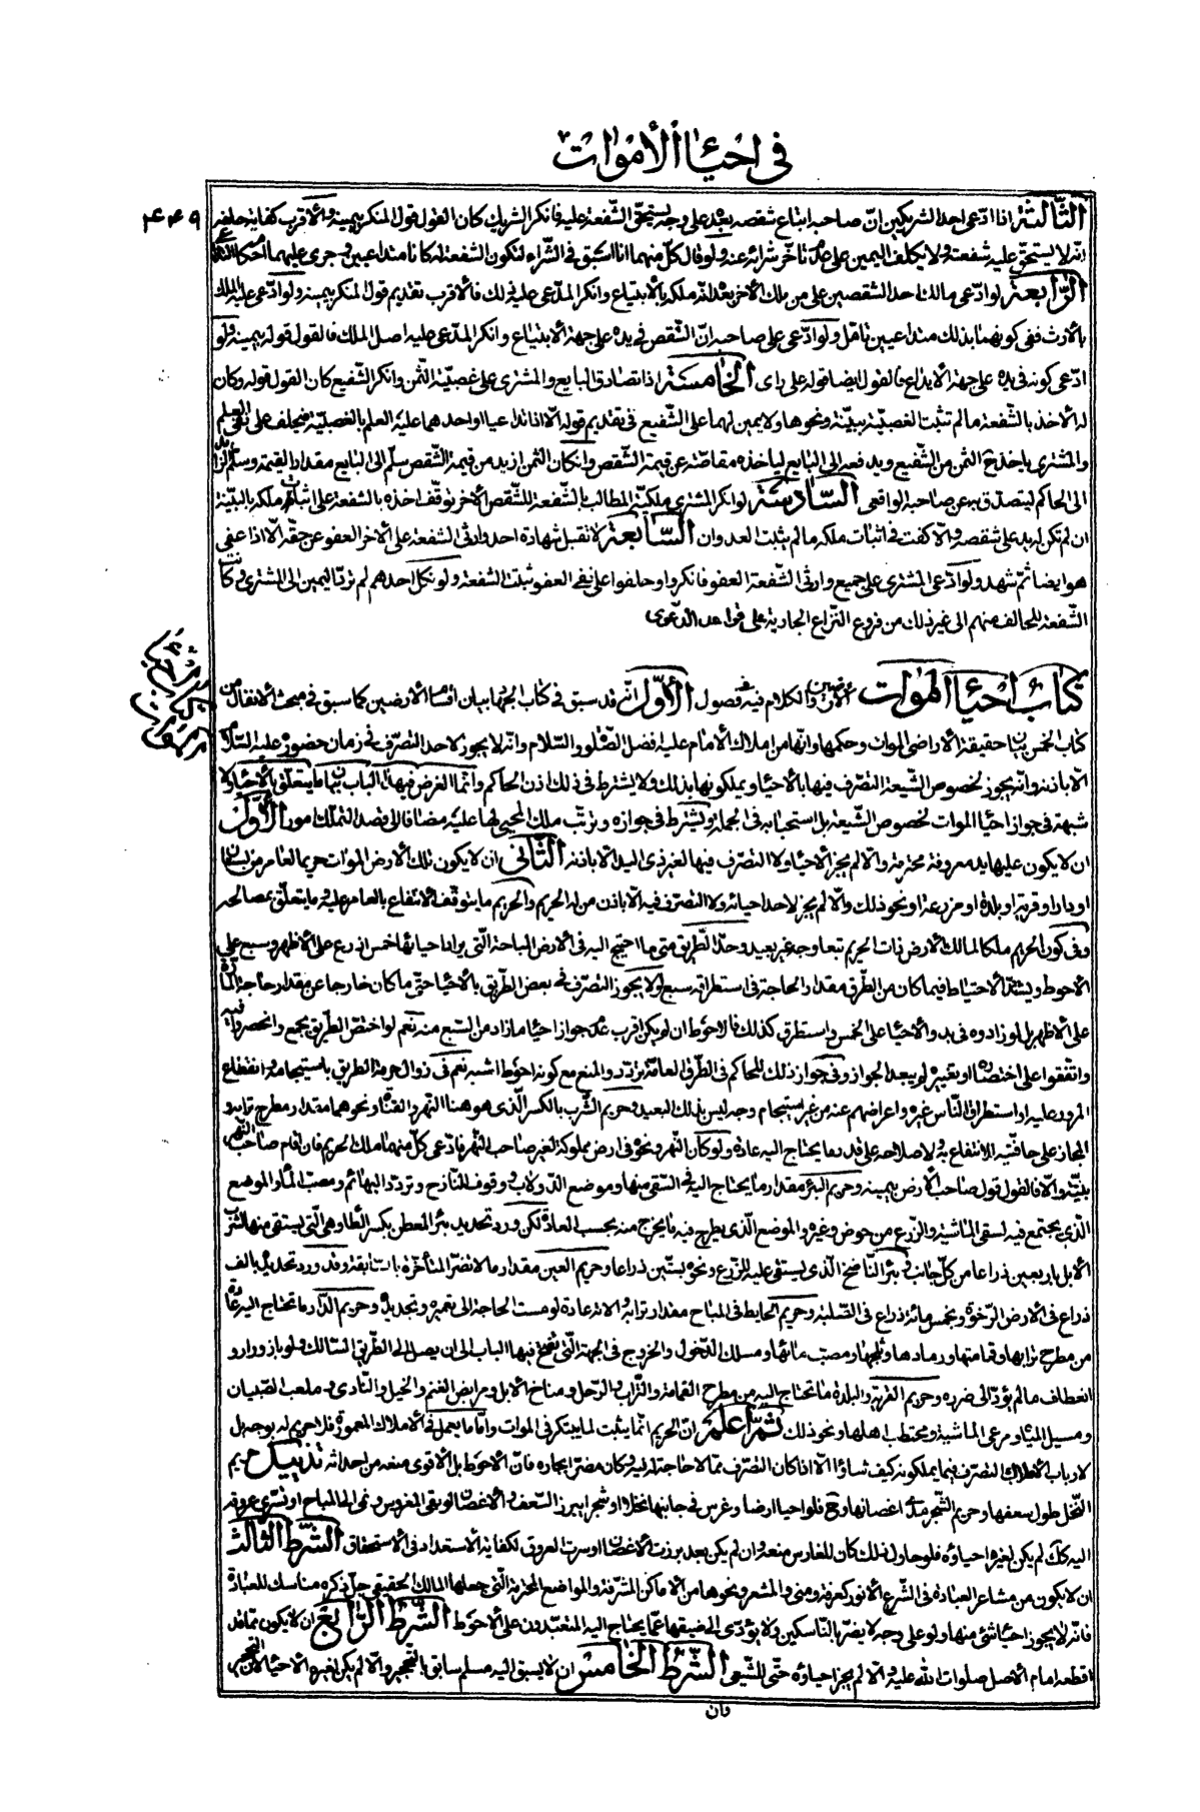 في احياء الأموات
۴۴۹
الثالثة اذا ادّعى احد الشريكين انّ صاحبه ابتاع شقصه بعده على وجه يستحقّ الشّفعة عليه فانكر الشريك كان القول قول المنكر بيمينه والأقرب كفاية حلفه
انّه لا يستحقّ عليه شفعته ولا يكلف اليمين على عدم تأخّر شرائه عنه ولو قال كلّ منهما انا اسبق في الشّراء لتكون الشفعة له كانا متداعيين وجرى عليهما احكام
الرّابعة لو ادّعى مالك احد الشقصين على من ملك الأخر بعد انّه ملكه بالأبتياع وانكر المدّعى عليه ذلك فالأقرب تقديم قول المنكر بيمينه ولو ادّعى عليه الملك
بالأرث ففي كونهما بذلك متداعيين تامّل ولو ادّعى على صاحبه انّ الشّقص في يده على جهة الأبتياع وانكر المدّعى عليه اصل الملك فالقول قوله بيمينه ولو
ادّعى كونه في يده على جهة الأيداع فالقول ايضا قوله على راى الخامسة اذا تصادق البايع والمشترى على غصبيّة الثّمن وانكر الشّفيع كان القول قوله وكان
له الأخذ بالشّفعة مالم تثبت الغصبيّة ببيّنة ونحوها ولا يمين لهما على الشّفيع في تقديم قوله الّا اذا ادّعيا او احدهما عليه العلم بالغصبيّة فيحلف على نفى العلم
والمشترى ياخذ ح الثمن من الشّفيع ويدفعه الى البايع لياخذه مقاصّة عن قيمة الشّقص وان كان الثمن ازيد من قيمة الشّقص سلّم الى البايع مقدار القيمة وسلّم الزايد
الى الحاكم ليتصدّق به عن صاحبه الواقعى السّادسة لو انكر المشترى ملكيّة المطالب بالشّفعة للشّقص الأخر توقّف اخذه بالشفعة على اثبات ملكه بالبيّنة
ان لم تكن له يد على شقصه والّا كفت في اثبات ملكه مالم يثبت العدوان السّابعة لا تقبل شهادة احد وارثى الشفعة على الأخر العفو عن حقّه الّا اذا عفى
هو ايضا ثمّ شهد ولو ادّعى المشترى على جميع وارثى الشّفعة العفو فانكروا وحلفوا على نفى العفو ثبت الشفعة ولو نكل احدهم لم تردّ اليمين الى المشترى وكانت
الشّفعة للحالف منهم الى غير ذلك من فروع النّزاع الجارية على قواعد الدّعوى
كتاب احياء الموات والكلام فيه في فصول الأوّل انّه قد سبق في كتاب الجهاد بيان اقسام الأرضين كما سبق في مبحث الأنفال من
كتاب الخمس بيان حقيقة الأراضى الموات وحكمها وانّها من املاك الأمام عليه افضل الصّلوة والسّلام وانّه لا يجوز لاحد التصرّف في زمان حضوره عليه السّلام
الّا باذنه وانّه يجوز لخصوص الشّيعة التصرّف فيها بالأحياء ويملكونها بذلك ولا يشترط في ذلك اذن الحاكم وانّما الغرض في هذا الباب بيان ما يتعلّق بالأحياء ولا
شبهة في جواز احياء الموات لخصوص الشّيعة بل استحبابه في الجملة ويشترط في جوازه وترتّب ملك المحيى لها عليه مضافا الى قصد التملّك امور الأوّل
ان لا يكون عليها يد معروفة محترمة والّا لم يجز الأحياء ولا التصرّف فيها لغير ذى اليد الّا باذنه الثّانى ان لا يكون تلك الأرض الموات حريم العامر من بستان
او دار او قرية او بلدة او مزرعة او نحو ذلك والّا لم يجز لاحد احيائه ولا التصرّف فيه الّا باذن من له الحريم والحريم ما يتوقّف الأنتفاع بالعامر عليه وما يتعلّق بمصالحه
وفى كون الحريم ملكا لمالك الأرض ذات الحريم تبعا وجه غير بعيد وحدّ الطّريق متى ما احتيج اليه في الأرض المباحة الّتى يراد احيائها خمس اذرع على الأظهر وسبع على
الأحوط ويشتدّ الأحتياط فيما كان من الطّرق مقدار الحاجة في استطراقه سبع ولا يجوز التصرّف في بعض الطّريق بالأحياء حتّى ما كان خارجا عن مقدار حاجة المارّة
على الأظهر بل لو زادوه في بدو الأحياء على الخمس واستطرق كذلك فالأحوط ان لم يكن اقرب عدم جواز احياء ما زاد من السّبع منه نعم لو اختصّ الطّريق بجمع وانحصروا فيه
واتّفقوا على اختصاره او تغييره لم يبعد الجواز وفى جواز ذلك للحاكم في الطّرق العامّة تردّد والمنع مع كونه احوط اشبه نعم في زوال حرمة الطّريق باستيجامه وانقطاع
المرور عليه او استطراق النّاس غيره واعراضهم عنه من غير استيجام وجه ليس بذلك البعيد وحريم الشّرب بالكسر الّذى هو هنا النهر والقناة ونحوهما مقدار مطرح ترابه و
المجاز على حافّتيه للأنتفاع به ولاصلاحه على قدر ما يحتاج اليه عادة ولو كان النّهر ونحوه في ارض مملوكة لغير صاحب النّهر فادّعى كلّ منهما ملك الحريم فان اقام صاحب النّهر
بيّنة والّا فالقول قول صاحب الأرض بيمينه وحريم البئر مقدار ما يحتاج اليه في السّقى منها وموضع الدّولاب ووقوف النّازح وتردّد البهائم ومصبّ الماء والموضع
الّذى يجتمع فيه لسقى الماشية والزّرع من حوض وغيره والموضع الّذى يطرح فيه ما يخرج منه بحسب العادة لكن ورد تحديد بئر المعطن بكسر الطّاء وهى الّتى يستقى منها لشرب
الأبل باربعين ذراعا من كلّ جانب وبئر النّاضح الّذى يستقى عليه للزّرع ونحوه بستّين ذراعا وحريم العين مقدار ما لا تضرّ المتأخّرة بالسّابقة وقد ورد تحديده بالف
ذراع في الأرض الرّخوة وبخمسمائة ذراع في الصّلبة وحريم الحايط في المباح مقدار ترابه والاته عادة لو مست الحاجة الى تعميره وتجديده وحريم الدّار ما تحتاج اليه عادة
من مطرح ترابها وقمامتها ورمادها وثلجها ومصبّ مائها ومسلك الدّخول والخروج في الجهة الّتى يفتح فيها الباب الى ان يصل الى الطّريق السّالك ولو بازورار و
انعطاف مالم يؤدّ الى ضرر وحريم القرية والبلدة ما تحتاج اليه من مطرح القمامة والتّراب والوحل ومناخ الأبل ومرابض الغنم والخيل والنّادى وملعب الصّبيان
ومسيل المياه ومرعى الماشية ومحتطب اهلها ونحو ذلك ثمّ اعلم انّ الحريم انّما يثبت لما يبتكر في الموات وامّا ما يعمل في الأملاك المعمورة فلا حريم له بوجه بل
لارباب الأملاك التصرّف فيما يملكونه كيف شاؤا الّا اذا كان التصرّف ممّا لا حاجة له اليه وكان مضرّا بجاره فانّ الأحوط بل الأقوى منعه من احداثه تذييل حريم
النّخل طول سعفها وحريم الشّجر مدّ اغصانها وح فلو احيا ارضا وغرس في جانبها نخلا او شجرا يبرز السّعف والأغصان لو بقى المغروس ونمى الى المباح او تسرى عروقه
اليه كك لم يكن لغيره احياؤه فلو حاول ذلك كان للغارس منعه وان لم يكن بعد برزت الأغصان او سرت العروق لكفاية الأستعداد في الأستحقاق الشّرط الثّالث
ان لا يكون من مشاعر العبادة في الشّرع الأنور كعرفة ومنى والمشعر ونحوها من الأماكن المشرّفة والمواضع المحترمة الّتى جعلها المالك الحقيقى جلّ ذكره مناسك للعبادة
فانّه لا يجوز احياء شئ منها ولو على وجه لا يضرّ بالنّاسكين ولا يؤدّى الى ضيقها عمّا يحتاج اليه المتعبّدون على الأحوط الشّرط الرّابع ان لا يكون ممّا قد
اقطعه امام الأصل صلوات الله عليه والّا لم يجز احياؤه حتّى للشّيعى الشّرط الخامس ان لا يسبق اليه مسلم سابق بالتّحجير والّا لم يكن لغيره الأحياء
فان